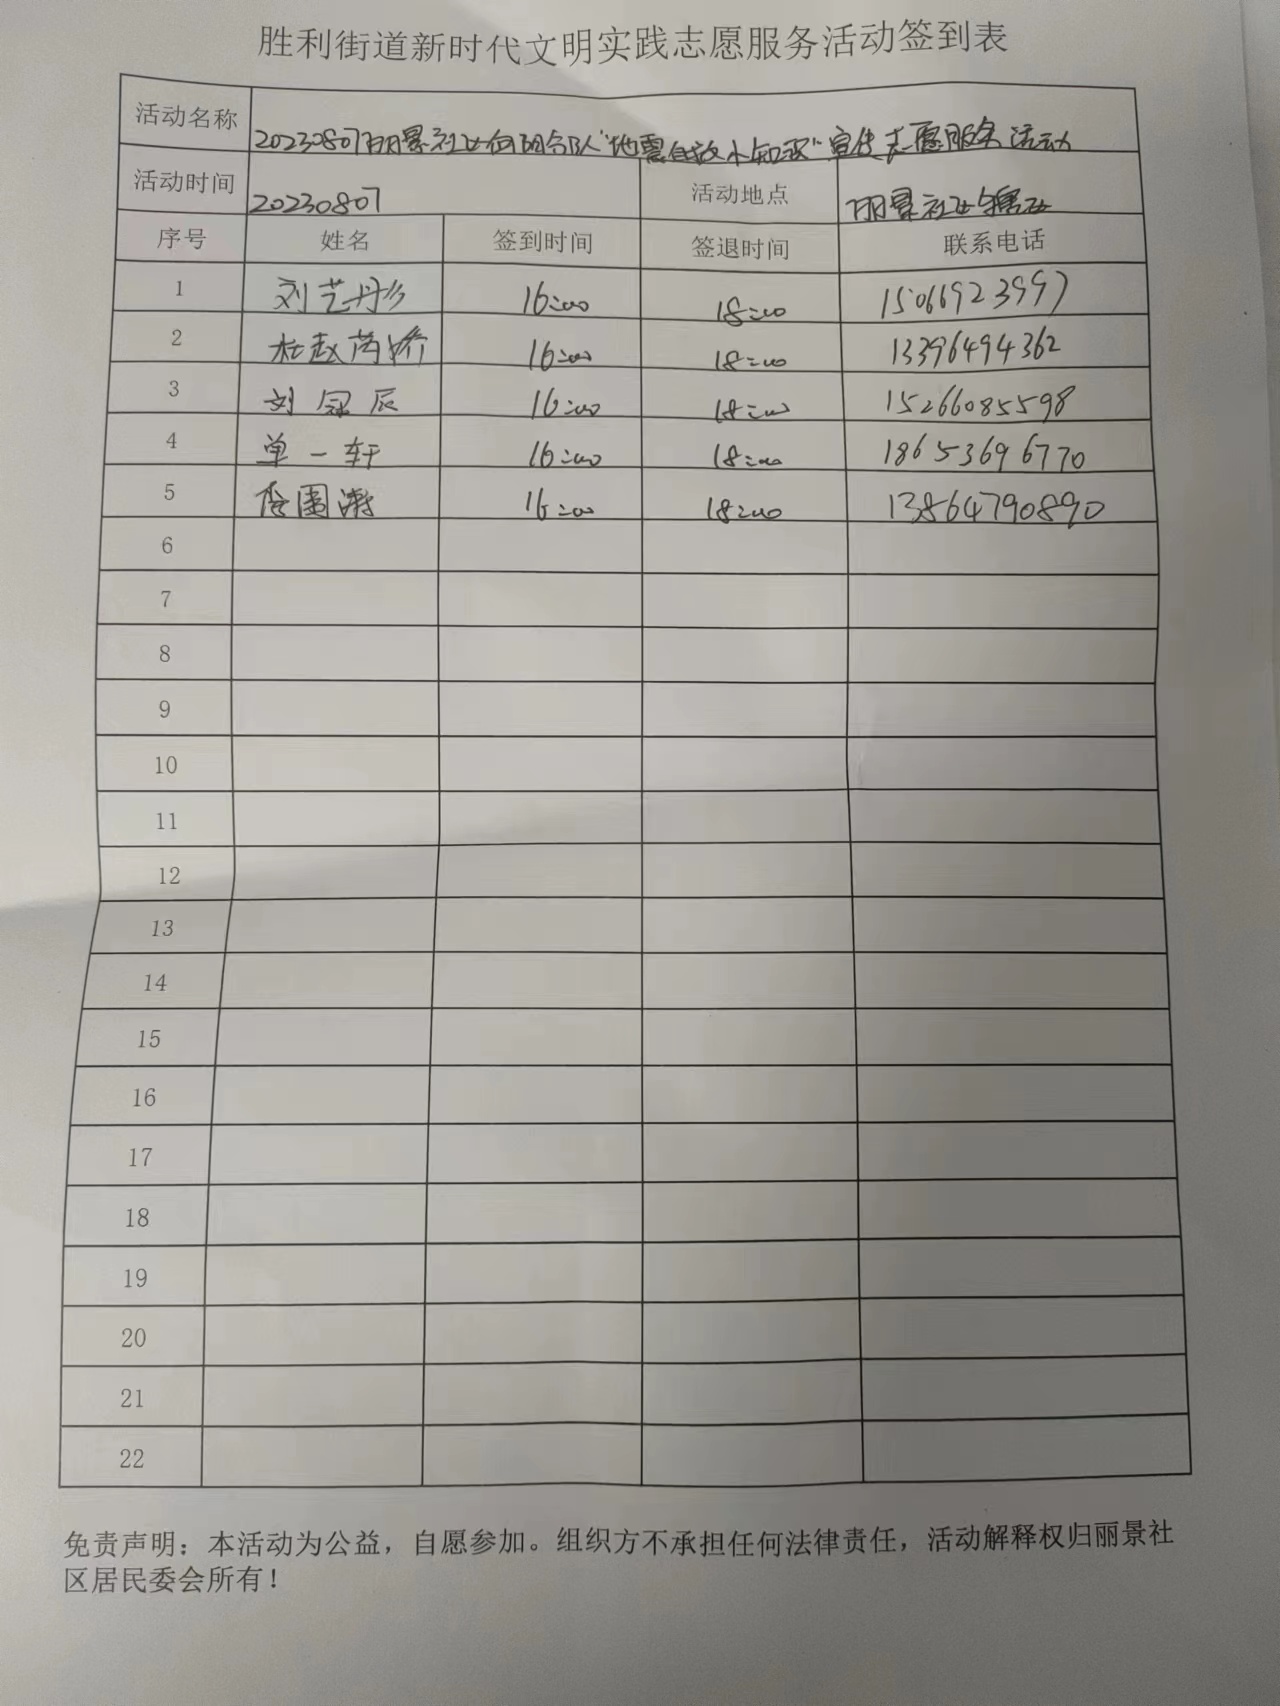 胜利街道新时代文明实践志愿服务活动签到表
活动名称 20230807丽景社区向阳合队"地震自救小知识"宣传志愿服务活动
活动时间 20230807 活动地点 丽景社区辖区
序号 姓名 签到时间 签退时间 联系电话
1 刘艺丹 16:00 18:00 15066923997
2 杜赵芮娇 16:00 18:00 13396494362
3 刘冠辰 16:00 18:00 15266085598
4 单一轩 16:00 18:00 18653696770
5 16:00 18:00 13864790890
6
7
8
9
10
11
12
13
14
15
16
17
18
19
20
21
22
免责声明：本活动为公益，自愿参加。组织方不承担任何法律责任，活动解释权归丽景社
区居民委会所有！